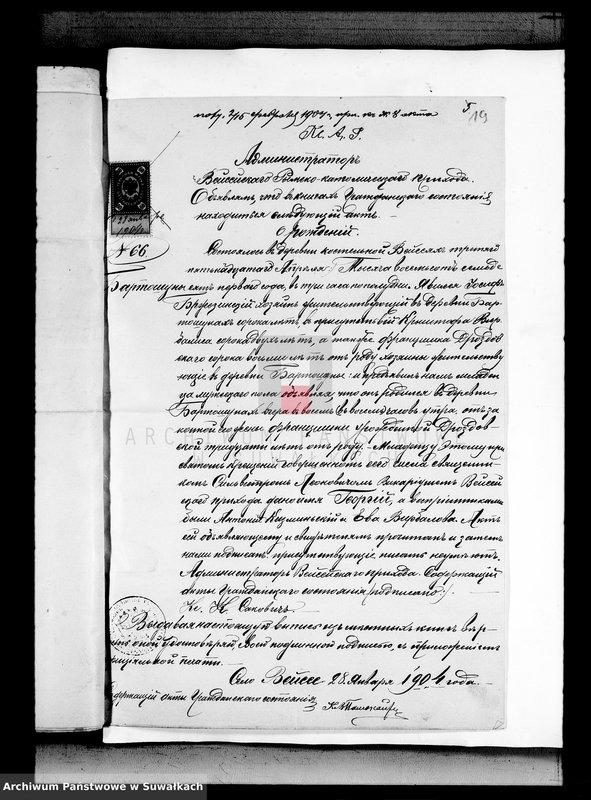 19
К. А. Г.
Администраторъ
Вейсейскаго Римско-католическаго прихода
Объявляю, что въ книгахъ гражданскаго состоянія
находится слѣдующій актъ.
О рожденій.
№ 66
Состоялось въ деревни костельной Вейсеяхъ
пятнадцатаго Апрѣля Тысяча восемьсотъ семьде-
Бартошуны сятъ перваго года, въ три часа пополудни. Явился Іосифъ
хозяинъ жительствующій въ деревни Бар-
тошунахъ сорока лѣтъ, въ присутствій
сорока двухъ лѣтъ, а также Францишка Дроздов-
скаго сорока восьми лѣтъ отъ роду хозяины жительству-
ющіе въ деревни Бартошуны: и предъявилъ намъ младен-
ца мужескаго пола объявляя, что онъ родился въ деревни
Бартошунахъ вчера въ восемь часовъ утра, отъ за-
конной его жены Францишки урожденной Дроздов-
ской тридцати лѣтъ отъ роду. Младенцу этому при
святомъ крещеній совершенномъ сего числа священни-
комъ Сильвестромъ Викаріушемъ Вейсей-
скаго прихода дано имя Георгій, а воспріемниками
были Антоній и Ева Вербалова. Актъ
сей объявляющему и свидѣтелямъ прочитанъ и затемъ
нами подписанъ присутствующіе писать неумѣютъ.
Администраторъ Вейсейскаго прихода Содержащій
акты гражданскаго состоянія (подписано):
Кс. Саковичъ
Выдавая настоящую выпись изъ метныхъ книгъ
подписью, съ приложеніемъ
печати.
Село Вейсее 28 Января 1904 года.
держащій акты гражданскаго состоянія
ARCHIWUM PAŃSTWOWE
Archiwum Państwowe w Suwałkach